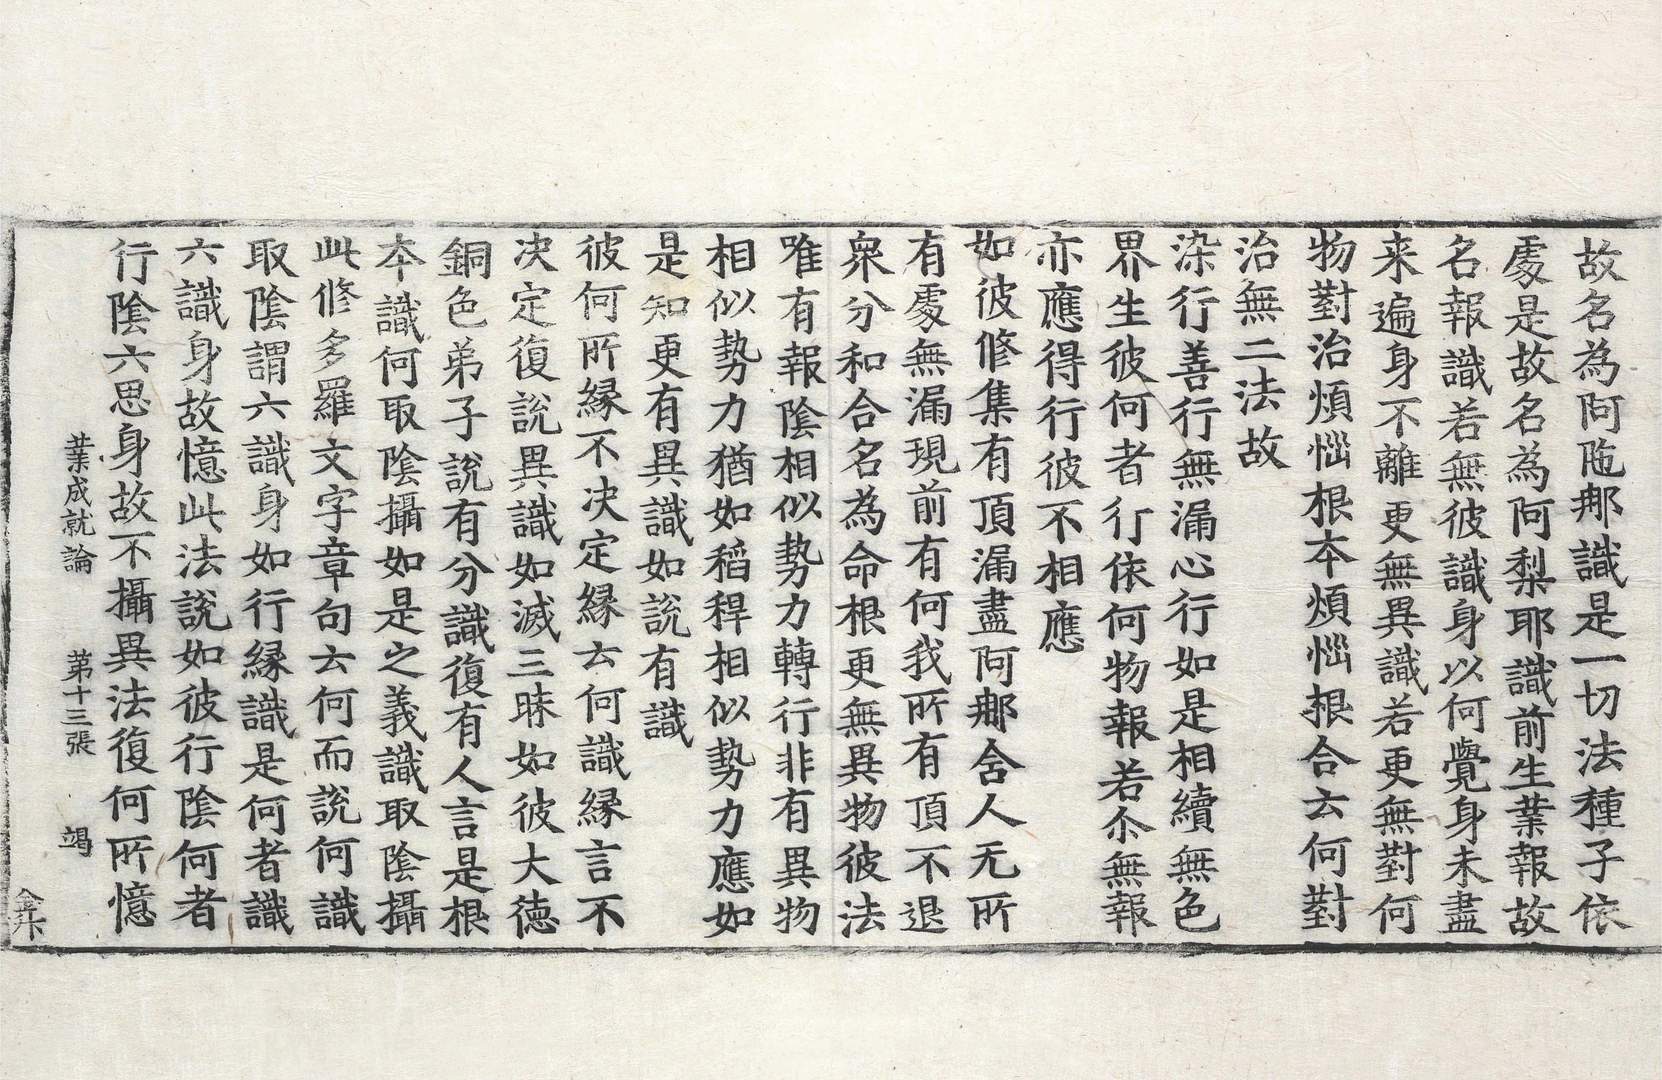 故名為阿陁那識是一切法種子依
處是故名為阿梨耶識前生業報故
名報識若無彼識身以何覺身未盡
来遍身不離更無異識若更無對何
物對治煩惱根本煩惱根合云何對
治無二法故
染行善行無漏心行如是相續無色
界生彼何者行依何物報若尒無報
亦應得行彼不相應
如彼修集有頂漏盡阿那舍人无所
有處無漏現前有何我所有頂不退
衆分和合名為命根更無異物彼法
唯有報陰相似勢力轉行非有異物
相似勢力猶如稻稈相似勢力應如
是知更有異識如說有識
彼何所縁不决定縁云何識縁言不
决定復說異識如滅三昧如彼大德
銅色弟子說有分識復有人言是根
本識何取陰攝如是之義識取陰攝
此修多羅文字章句云何而說何識
取陰謂六識身如行縁識是何者識
六識身故憶此法說如彼行陰何者
行陰六思身故不攝異法復何所憶
業成就論 第十三張 竭